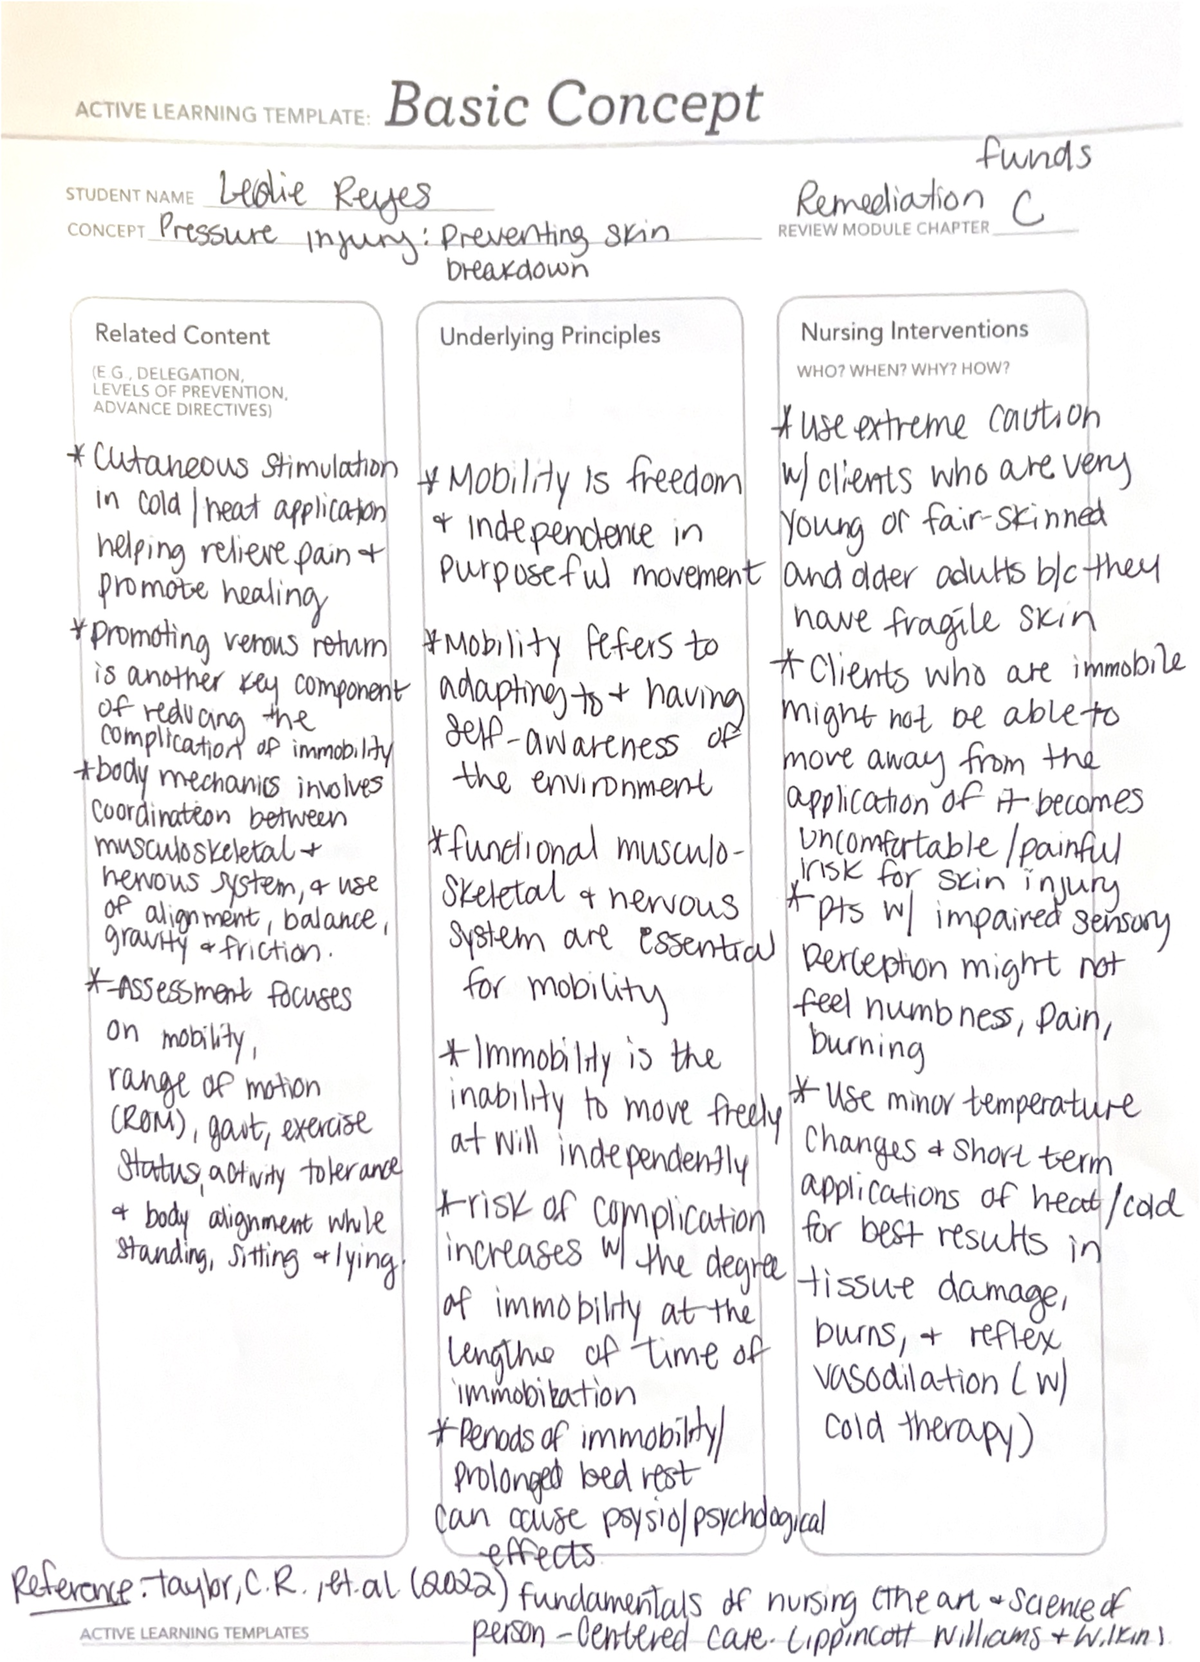 ACTIVE LEARNING TEMPLATE: Basic Concept
funds
STUDENT NAME Leslie Reyes
Remediation C
CONCEPT Pressure injury: Preventing skin
breakdown
REVIEW MODULE CHAPTER
Related Content
(E.G., DELEGATION,
LEVELS OF PREVENTION,
ADVANCE DIRECTIVES)
* Cutaneous stimulation
in cold/heat application
helping relieve pain +
promote healing
* promoting venous return
is another key component
of reducing the
complication of immobility
* body mechanics involves
coordination between
musculoskeletal +
nervous system, + use
of alignment, balance,
gravity + friction.
* Assessment focuses
on mobility,
range of motion
(ROM), gait, exercise
status, activity tolerance
+ body alignment while
standing, sitting + lying.
Underlying Principles
* Mobility is freedom
+ independence in
purposeful movement
* Mobility refers to
adapting to + having
self-awareness of
the environment
* functional musculo-
skeletal + nervous
system are essential
for mobility
* Immobility is the
inability to move freely
at will independently
* risk of complication
increases w/ the degree
of immobility at the
lengths of time of
immobization
* Periods of immobility/
prolonged bed rest
can cause psysio/psychological
effects
Nursing Interventions
WHO? WHEN? WHY? HOW?
* use extreme caution
w/ clients who are very
young or fair-skinned
and older adults b/c they
have fragile skin
* Clients who are immobile
might not be able to
move away from the
application of it becomes
uncomfortable/painful
risk for skin injury
* pts w/ impaired sensory
perception might not
feel numbness, pain,
burning
* Use minor temperature
changes + short term
applications of heat/cold
for best results in
tissue damage,
burns, + reflex
vasodilation (w/
cold therapy)
Reference: Taylor, C.R., et.al (2022) fundamentals of nursing (The art + Science of
person-Centered care. Lippincott Williams + Wilkins.
ACTIVE LEARNING TEMPLATES